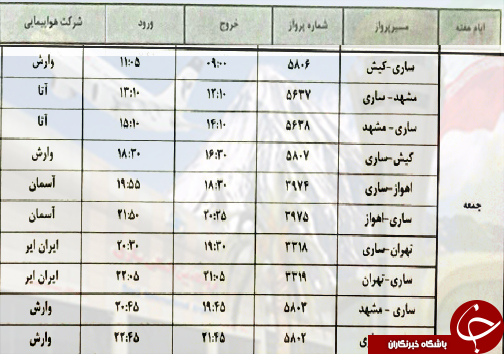 ایام هفته مسیرپرواز شماره پرواز خروج ورود شرکت هواپیمایی
ساری-کیش ۵۸۰۶ ۰۹:۰۰ ۱۱:۰۵ وارش
مشهد-ساری ۵۶۳۷ ۱۲:۱۰ ۱۳:۱۰ آتا
ساری-مشهد ۵۶۳۸ ۱۴:۱۰ ۱۵:۱۰ آتا
کیش-ساری ۵۸۰۷ ۱۶:۳۰ ۱۸:۳۰ وارش
اهواز-ساری ۳۹۷۴ ۱۸:۳۰ ۱۹:۵۵ آسمان
جمعه
ساری-اهواز ۳۹۷۵ ۲۰:۲۵ ۲۱:۵۰ آسمان
تهران-ساری ۳۳۱۸ ۱۹:۳۰ ۲۰:۳۰ ایران ایر
ساری-تهران ۳۳۱۹ ۲۱:۰۵ ۲۲:۰۵ ایران ایر
ساری - مشهد ۵۸۰۳ ۱۹:۴۵ ۲۰:۴۵ وارش
۵۸۰۲ ۲۱:۴۵ ۲۲:۴۵ وارش
باشگاه خبرنگاران